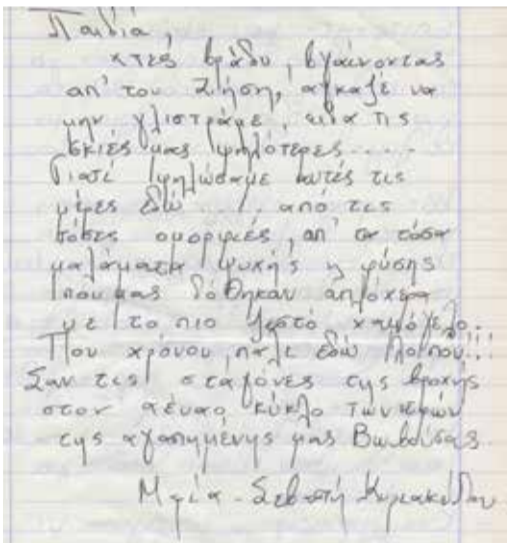 Παιδιά
χτες βράδυ, βγαίνοντας
απ' του Ζήση, αγκαζέ να
μην γλιστράμε, είδα τις
σκιές μας ψηλότερες....
Γιατί ψηλώσαμε αυτές τις
μέρες εδώ, από τις
τόσες ομορφιές, απ' τα τόσα
μαλάματα ψυχής η φύσης
που μας δόθηκαν απλόχερα
με το πιο ζεστό χαμόγελο.
Του χρόνου πάλι εδώ λοιπόν!!!
Σαν τις σταγόνες της βροχής
στον αέναο κύκλο των νερών
της αγαπημένης μας Βωβούσας.
Σεβαστή Κυριακίδου